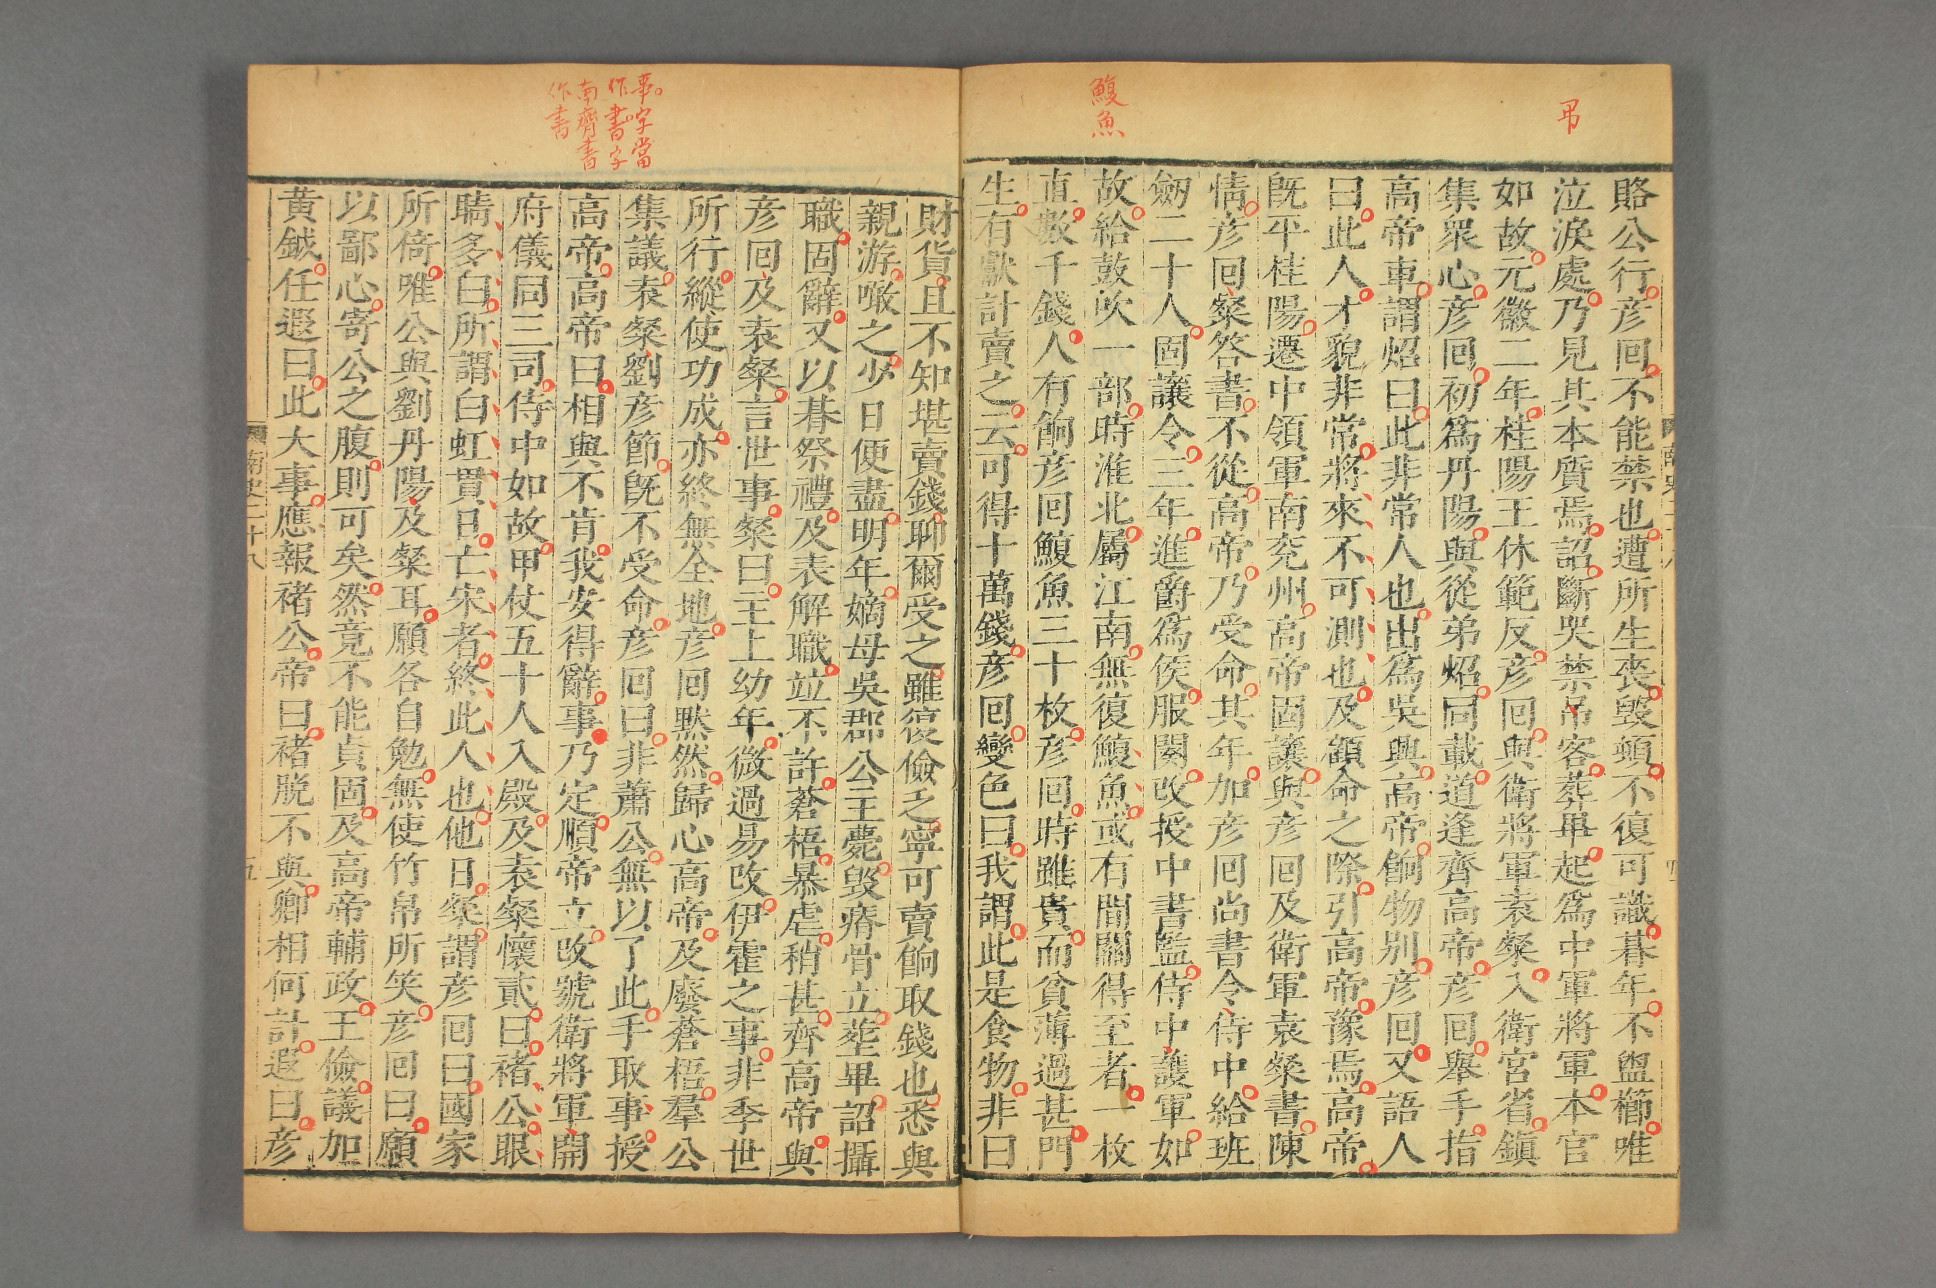 弔
鰒魚
賂公行彦回不能禁也遭所生喪毁頓不復可識朞年不盥櫛唯
泣淚處乃見其本質焉詔斷哭禁弔客葬畢起爲中軍將軍本官
如故元徽二年桂陽王休範反彦回與衛將軍袁粲入衛宫省鎮
集衆心彦回初爲丹陽與從弟炤同載道逢齊高帝彦回舉手指
高帝車謂炤曰此非常人也出爲吳興高帝餉物别彦回又語人
曰此人才貌非常將來不可測也及顧命之際引高帝豫焉高帝
旣平桂陽遷中領軍南兖州高帝固讓與彦回及衛軍袁粲書陳
情彦回粲答書不從高帝乃受命其年加彦回尚書令侍中給班
劒二十人固讓令三年進爵爲侯服闋改授中書監侍中護軍如
故給鼓吹一部時淮北屬江南無復鰒魚或有間關得至者一枚
直數千錢人有餉彦回鰒魚三十枚彦回時雖貴而貧薄過甚門
生有獻計賣之云可得十萬錢彦回變色曰我謂此是食物非曰
事字當
作書字
南齊書
作書
財貨且不知堪賣錢聊爾受之雖復儉乏寧可賣餉取錢也悉與
親游噉之少日便盡明年嫡母吳郡公主薨毁瘠骨立葬畢詔攝
職固辭又以朞祭禮及表解職竝不許蒼梧暴虐稍甚齊高帝與
彦回及袁粲言世事粲曰主上幼年微過易改伊霍之事非季世
所行縱使功成亦終無全地彦回默然歸心高帝及廢蒼梧羣公
集議袁粲劉彦節旣不受命彦回曰非蕭公無以了此手取事授
高帝高帝曰相與不肯我安得辭事乃定順帝立改號衛將軍開
府儀同三司侍中如故甲仗五十人入殿及袁粲懷貳曰褚公眼
睛多白所謂白虹貫日亡宋者終此人也他日粲謂彦回曰國家
所倚唯公與劉丹陽及粲耳願各自勉無使竹帛所笑彦回曰願
以鄙心寄公之腹則可矣然竟不能貞固及高帝輔政王儉議加
黄鉞任遐曰此大事應報褚公帝曰褚脱不與卿相何計遐曰彦
南史二十八
五